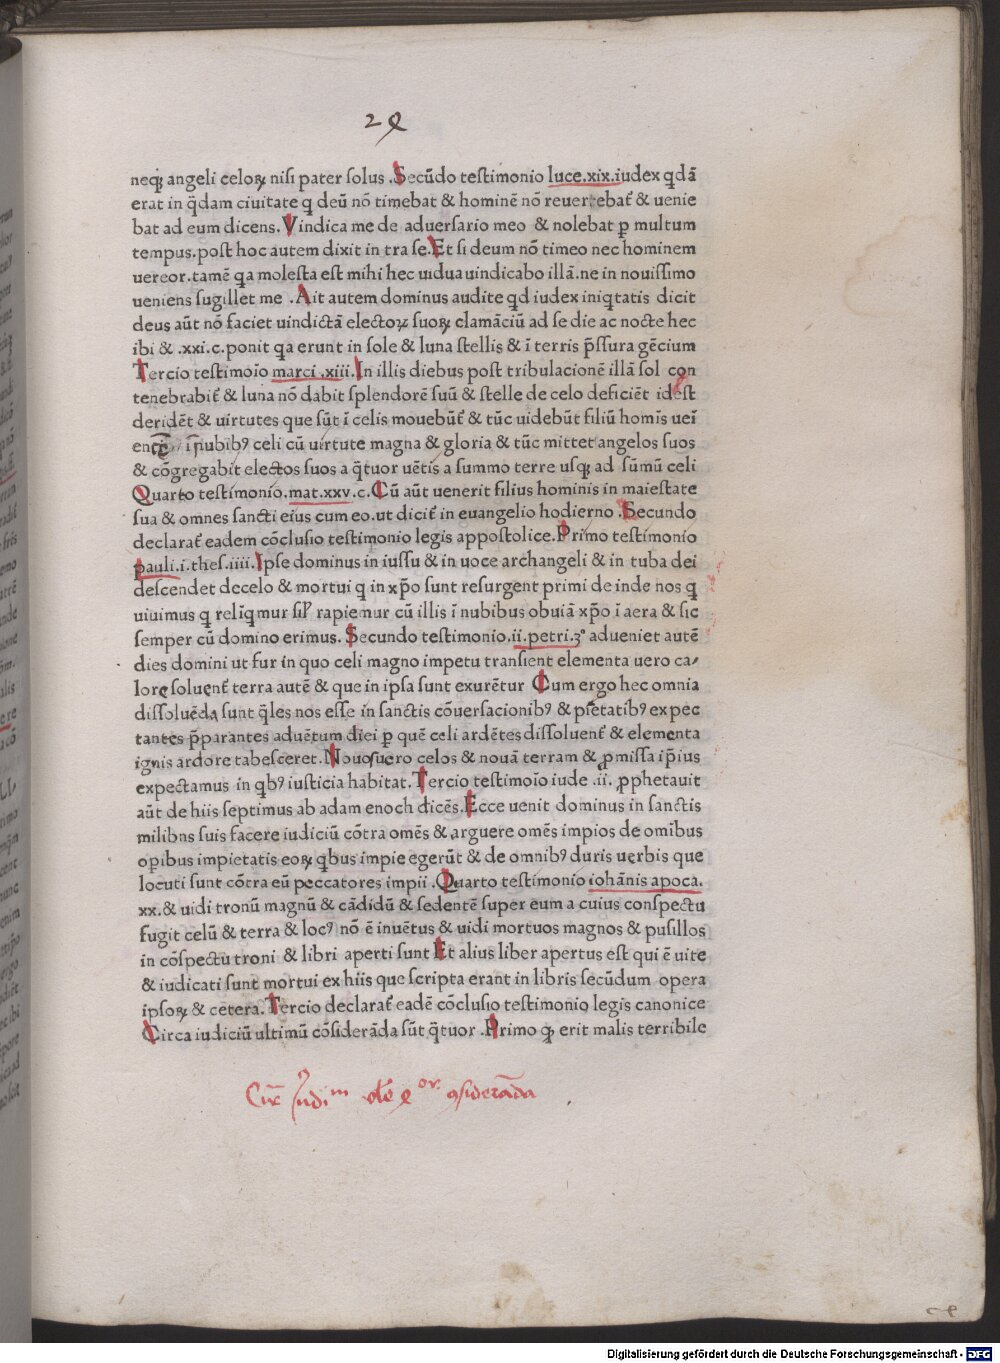 24
neqꝫ angeli celoꝝ nisi pater solus .Secūdo testimonio luce.xix.iudex qdā
erat in q̄dam ciuitate q deū nō timebat & hominē nō reuertebat̄ & uenie
bat ad eum dicens. Vindica me de aduersario meo & nolebat p̱ multum
tempus.post hoc autem dixit in tra se. Et si deum nō timeo nec hominem
uereor.tamē q̄a molesta est mihi hec uidua uindicabo illā.ne in nouissimo
ueniens sugillet me .Ait autem dominus audite qd iudex iniqtatis dicit
deus aūt nō faciet uindictā electoꝝ suoꝝ clamāciū ad se die ac nocte hec
ibi & .xxi.c.ponit q̄a erunt in sole & luna stellis & ī terris p̄ssura gēcium
Tercio testimoīo marci .xiii.In illis diebus post tribulacionē illā sol con
tenebrabit̄ & luna nō dabit splendorē suū & stelle de celo deficiēt idest
deridēt & uirtutes que sūt ī celis mouebūt̄ & tūc uidebūt filiū homīs ueī
entē ī nubibꝰ celi cū uirtute magna & gloria & tūc mittet angelos suos
& cōgregabit electos suos a q̄tuor uētis a summo terre usqꝫ ad sūmū celi
Quarto testimonio.mat.xxv.c.Cū aūt uenerit filius hominis in maiestate
sua & omnes sancti eius cum eo.ut dicit̄ in euangelio hodierno .Secundo
declarat̄ eadem cōclusio testimonio legis appostolice.Primo testimonio
pauli.i.thes.iiii.Ipse dominus in iussu & in uoce archangeli & in tuba dei
descendet decelo & mortui q in xp̄o sunt resurgent primi de inde nos q
uiuimus q reliq̄mur sil̄ rapiemur cū illis ī nubibus obuiā xp̄o ī aera & sic
semper cū domino erimus. Secundo testimonio.ii.petri.3° adueniet autē
dies domini ut fur in quo celi magno impetu transient elementa uero ca/
lore soluent̄ terra autē & que in ipsa sunt exurētur Cum ergo hec omnia
dissoluēda sunt q̄les nos esse in sanctis cōuersacionibꝰ & pietatibꝰ expec
tantes p̄parantes aduētum diei p̱ quē celi ardētes dissoluent̄ & elementa
ignis ardore tabesceret. Nouosuero celos & nouā terram & ꝓmissa ip̄ius
expectamus in qbꝰ iusticia habitat. Tercio testimoīo iude .ii. ꝓphetauit
aūt de hiis septimus ab adam enoch dicēs. Ecce uenit dominus in sanctis
milibns suis facere iudiciū cōtra omēs & arguere omēs impios de omibus
oꝑibus impietatis eoꝝ qbus impie egerūt & de omnibꝰ duris uerbis que
locuti sunt cōtra eū peccatores impii .Quarto testimonio iohānis apoca.
xx.& uidi tronū magnū & cādidū & sedentē super eum a cuius conspectu
fugit celū & terra & locꝰ nō ē inuētus & uidi mortuos magnos & pusillos
in cōspectu troni & libri aperti sunt Et alius liber apertus est qui ē uite
& iudicati sunt mortui ex hiis que scripta erant in libris secūdum opera
ipsoꝝ & cetera. Tercio declarat̄ eadē cōclusio testimonio legis canonice
Circa iudiciū ultimū cōsiderāda sūt q̄tuor .Primo qꝫ erit malis terribile
Digitalisierung gefördert durch die Deutsche Forschungsgemeinschaft - DFG